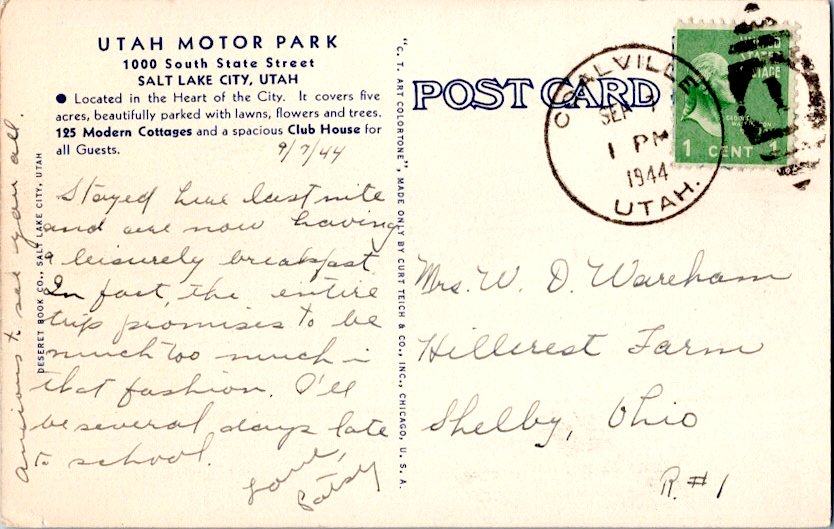 UTAH MOTOR PARK
1000 South State Street
SALT LAKE CITY, UTAH
● Located in the Heart of the City. It covers five
acres, beautifully parked with lawns, flowers and trees.
125 Modern Cottages and a spacious Club House for
all Guests.
9/7/44
Stayed here last nite
and are now having
a leisurely breakfast
In fact, the entire
trip promises to be
much too much in
that fashion. I'll
be several days late
to school.
Love,
Patsy
Anxious to see you all.
DESERET BOOK CO., SALT LAKE CITY, UTAH
"C. T. ART COLORTONE", MADE ONLY BY CURT TEICH & CO., INC., CHICAGO, U. S. A.
POST CARD
COALVILLE
SEP 7
1 PM
1944
UTAH.
UNITED
STATES
POSTAGE
WASHINGTON
1 CENT 1
Mrs. W. D. Wareham
Hillcrest Farm
Shelby, Ohio
R. #1